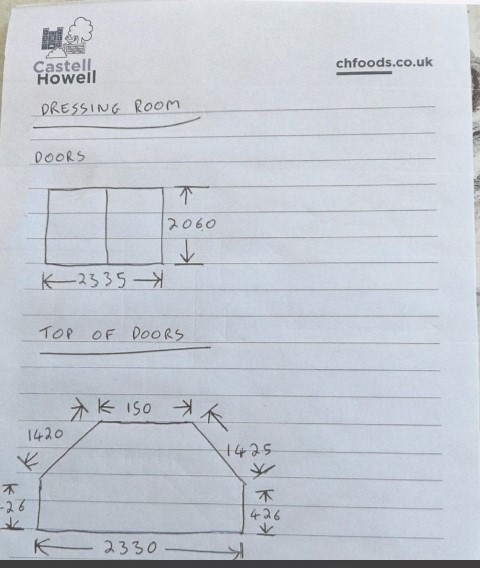 Castell
Howell
chfoods.co.uk
DRESSING ROOM
DOORS
2060
2335
TOP OF DOORS
150
1420
1425
426
2330